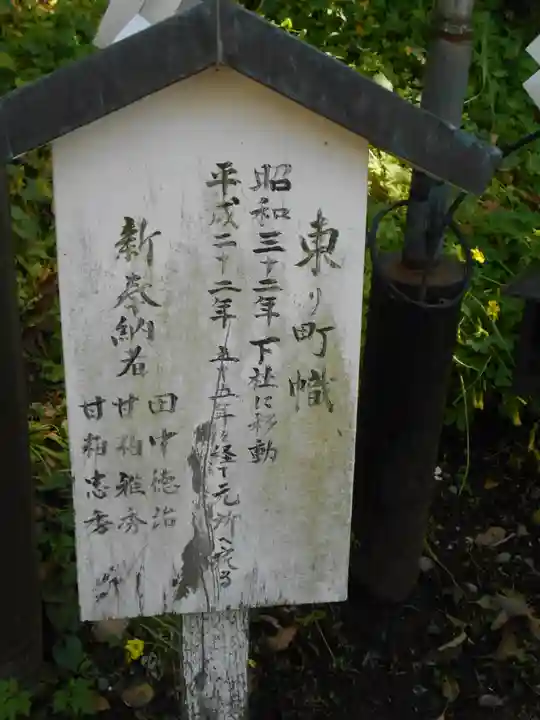 東リ町幟
昭和三十二年下社に移動
平成二十二年五十五年を経て元所へ戻る
新奉納者
田中徳治
甘粕雅秀
甘粕忠秀